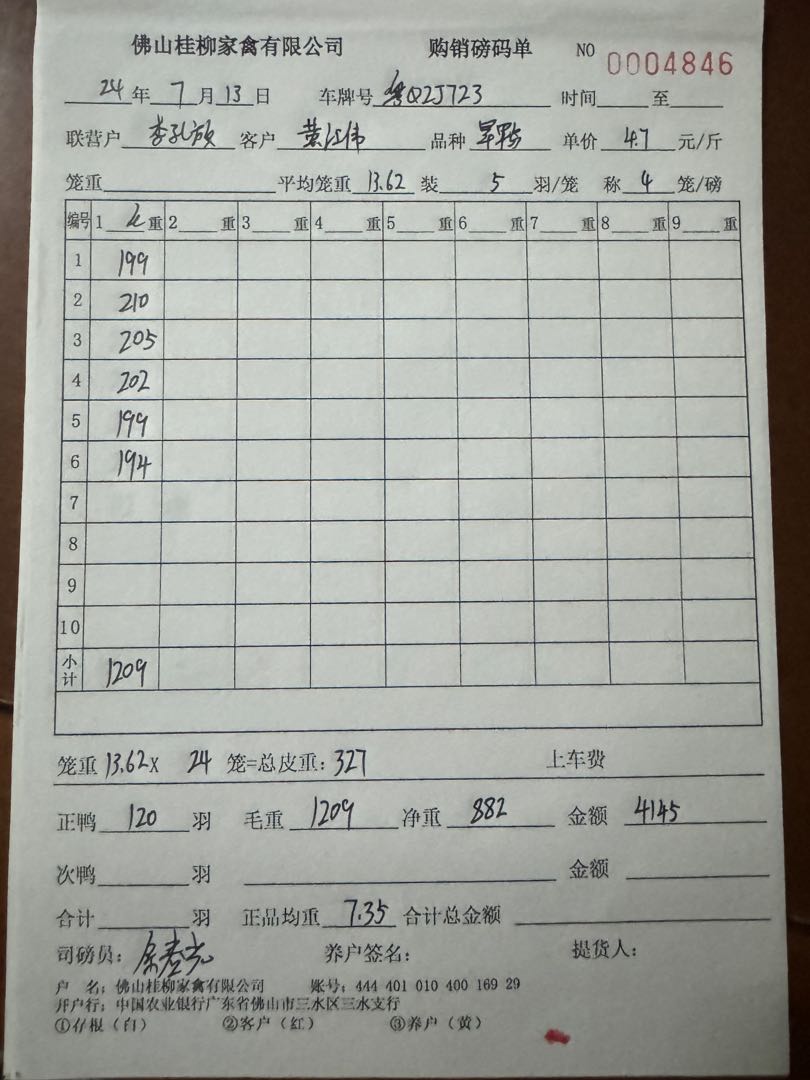 佛山桂柳家禽有限公司 购销磅码单 NO 0004846
24年7月13日 车牌号 粤Q2J723 时间 至
联营户 李孔 客户 黄江伟 品种 旱鸭 单价 4.7 元/斤
笼重 平均笼重 13.62 装 5 羽/笼 称 4 笼/磅
编号 1 毛 重 2 重 3 重 4 重 5 重 6 重 7 重 8 重 9 重
1 199
2 210
3 205
4 202
5 199
6 194
7
8
9
10
小计 1209
笼重 13.62 X 24 笼=总皮重: 327 上车费
正鸭 120 羽 毛重 1209 净重 882 金额 4145
次鸭 羽 金额
合计 羽 正品均重 7.35 合计总金额
司磅员: 养户签名: 提货人:
户 名: 佛山桂柳家禽有限公司 账号: 444 401 010 400 169 29
开户行: 中国农业银行广东省佛山市三水区三水支行
①存根（白） ②客户（红） ③养户（黄）